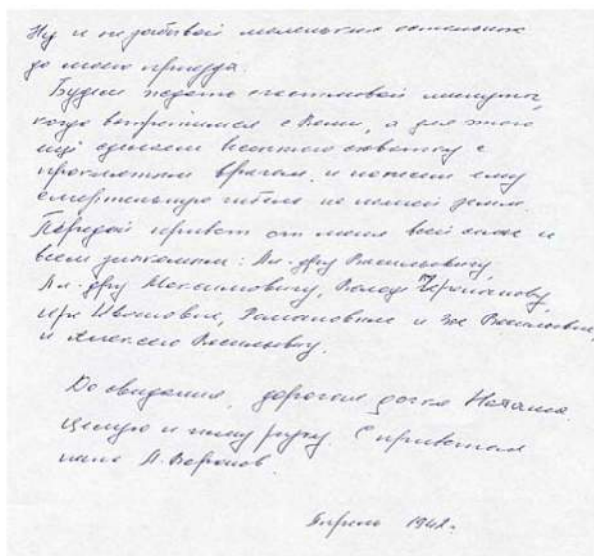 Ну и не забывай маленьких остальных
до моего приезда.
Будем ждать счастливой минуты,
когда встретимся с Вами, а для этого
ещё сделаем схватку с
проклятым врагом и нанесем ему
смертельную гибель на нашей земле.
Передай привет от меня всей и
всем знакомым: Ал-дру Васильевичу,
Ал-дру Максимовичу, Володе
Ивановне, Романовне и Зое Васильевне,
и Алексею Васильевичу.
До свидания, дорогая дочка Наташа.
Целую и жму руку. С приветом
папа А. Воронов.
Апрель 1942г.